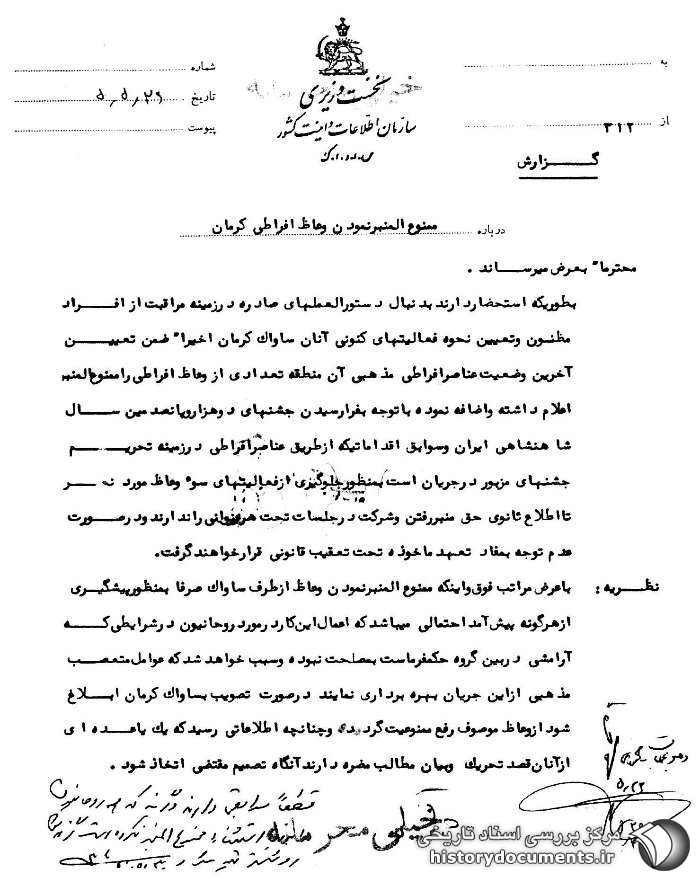 به
شماره
خیلی محرمانه
نخست وزیری
تاریخ ۵۰٫۵٫۲۹
سازمان اطلاعات و امنیت کشور
از ۳۱۲
پیوست
س.ا.و.ا.ک
گــزارش
درباره ممنوع المنبرنمودن وعاظ افراطی کرمان
محترما" بعرض میرساند .
بطوریکه استحضاردارند بدنبال دستورالعملهای صادره درزمینه مراقبت از افــراد
مظنون وتعیین نحوه فعالیتهای کنونی آنان ساواک کرمان اخیرا" ضمن تعییــن
آخرین وضعیت عناصرافراطی مذهبی آن منطقه تعدادی از وعاظ افراطی راممنوع المنبر
اعلام داشته واضافه نموده باتوجه بفرارسیدن جشنهای دوهزاروپانصدمین ســال
شاهنشاهی ایران وسوابق اقداماتیکه ازطریق عناصرافراطی درزمینه تحریــم
جشنهای مزبور درجریان است بمنظورجلوگیری ازفعالیتهای سوء وعاظ مورد نظــر
تااطلاع ثانوی حق منبررفتن وشرکت درجلسات تحت هرعنوانی راندارند ودرصورت
عدم توجه بمفاد تعهد ماخوذه تحت تعقیب قانونی قرارخواهندگرفت.
نظــریه : باعرض مراتب فوق واینکه ممنوع المنبرنمودن وعاظ ازطرف ساواک صرفا بمنظورپیشگیری
ازهرگونه پیش آمد احتمالی میباشد که اعمال این کار درمورد روحانیون درشرایطی کــه
آرامشی دربین گروه حکمفرماست بمصلحت نبوده وسبب خواهد شد که عوامل متعصب
مذهبی ازاین جریان بهره برداری نمایند درصورت تصویب بساواک کرمان ابــلاغ
شود ازوعاظ موصوف رفع ممنوعیت گردیده وچنانچه اطلاعاتی رسید که یک یاعده ای
ازآنان قصد تحریک وبیان مطالب مضره دارند آنگاه تصمیم مقتضی اتخاذ شود .
قطعاً سوابقی دارند وگرنه که
خیلی محرمانه
مرکز بررسی اسناد تاریخی
historydocuments.ir